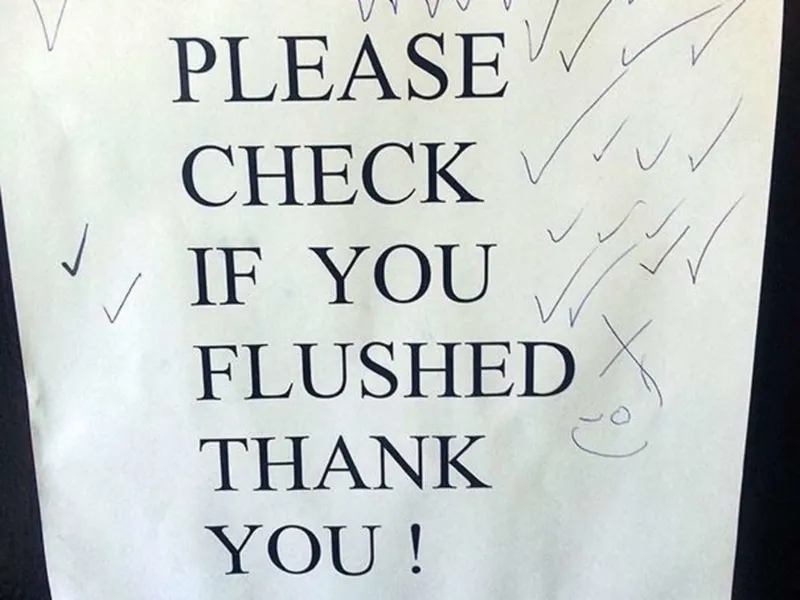 PLEASE
CHECK
IF YOU
FLUSHED
THANK
YOU !